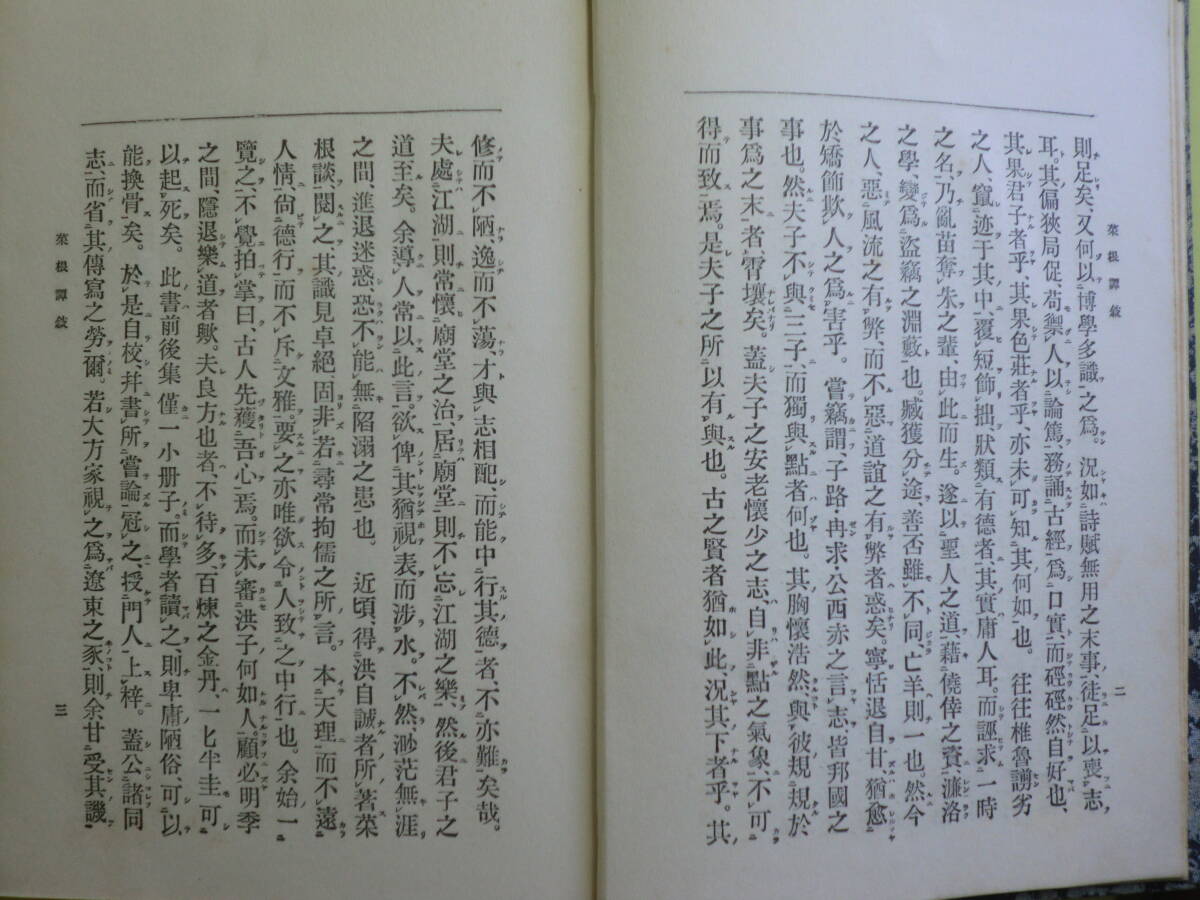 菜根譚敍
二
則足矣、又何以博學多識之爲。況如詩賦無用之末事、徒足以喪志
耳。其偏狹局促、苟禦人以論篤、務誦古經爲口實、而硜硜然自好也、
其果君子者乎、其果色莊者乎、亦未可知其何如也。往往椎魯謭劣
之人、竄迹于其中、覆短飾拙、狀類有德者、其實庸人耳。而誣求一時
之名、乃亂苗奪朱之輩、由此而生。遂以聖人之道、藉僥倖之資、濂洛
之學、變爲盜竊之淵藪也。臧獲分途、善否雖不同、亡羊則一也。然今
之人、惡風流之有弊、而不惡道誼之有弊者惑矣。寧恬退自甘、猶愈
於矯飾欺人之爲害乎。嘗竊謂、子路冉求公西赤之言志、皆邦國之
事也。然夫子不與三子、而獨與點者何也。其胸懷浩然、與彼規規於
事爲之末者霄壤矣。蓋夫子之安老懷少之志、自非點之氣象、不可
得而致焉。是夫子之所以有與也。古之賢者猶如此、況其下者乎。其
修而不陋、逸而不蕩、才與志相配、而能中行其德者、不亦難矣哉。
夫處江湖則常懷廟堂之治、居廟堂則不忘江湖之樂、然後君子之
道至矣。余導人常以此言。欲俾其猶視表而涉水。不然、渺茫無涯
之間、進退迷惑、恐不能無陷溺之患也。近頃、得洪自誠者所著菜
根談、閱之、其識見卓絕、固非若尋常拘儒之所言。本天理而不遠
人情、尙德行而不斥文雅。要之亦唯欲令人致之中行也。余始一
覽之、不覺拍掌曰、古人先獲吾心焉。而未審洪子何如人。顧必明季
之間、隱退樂道者歟。夫良方也者、不待多、百煉之金丹、一匕半圭可
以起死矣。此書前後集僅一小册子。而學者讀之、則卑庸陋俗、可以
能換骨矣。於是自校、幷書所嘗論冠之、授門人上梓。蓋公諸同
志、而省其傳寫之勞爾。若大方家視之爲遼東之豕、則余甘受其譏
菜根譚敍
三